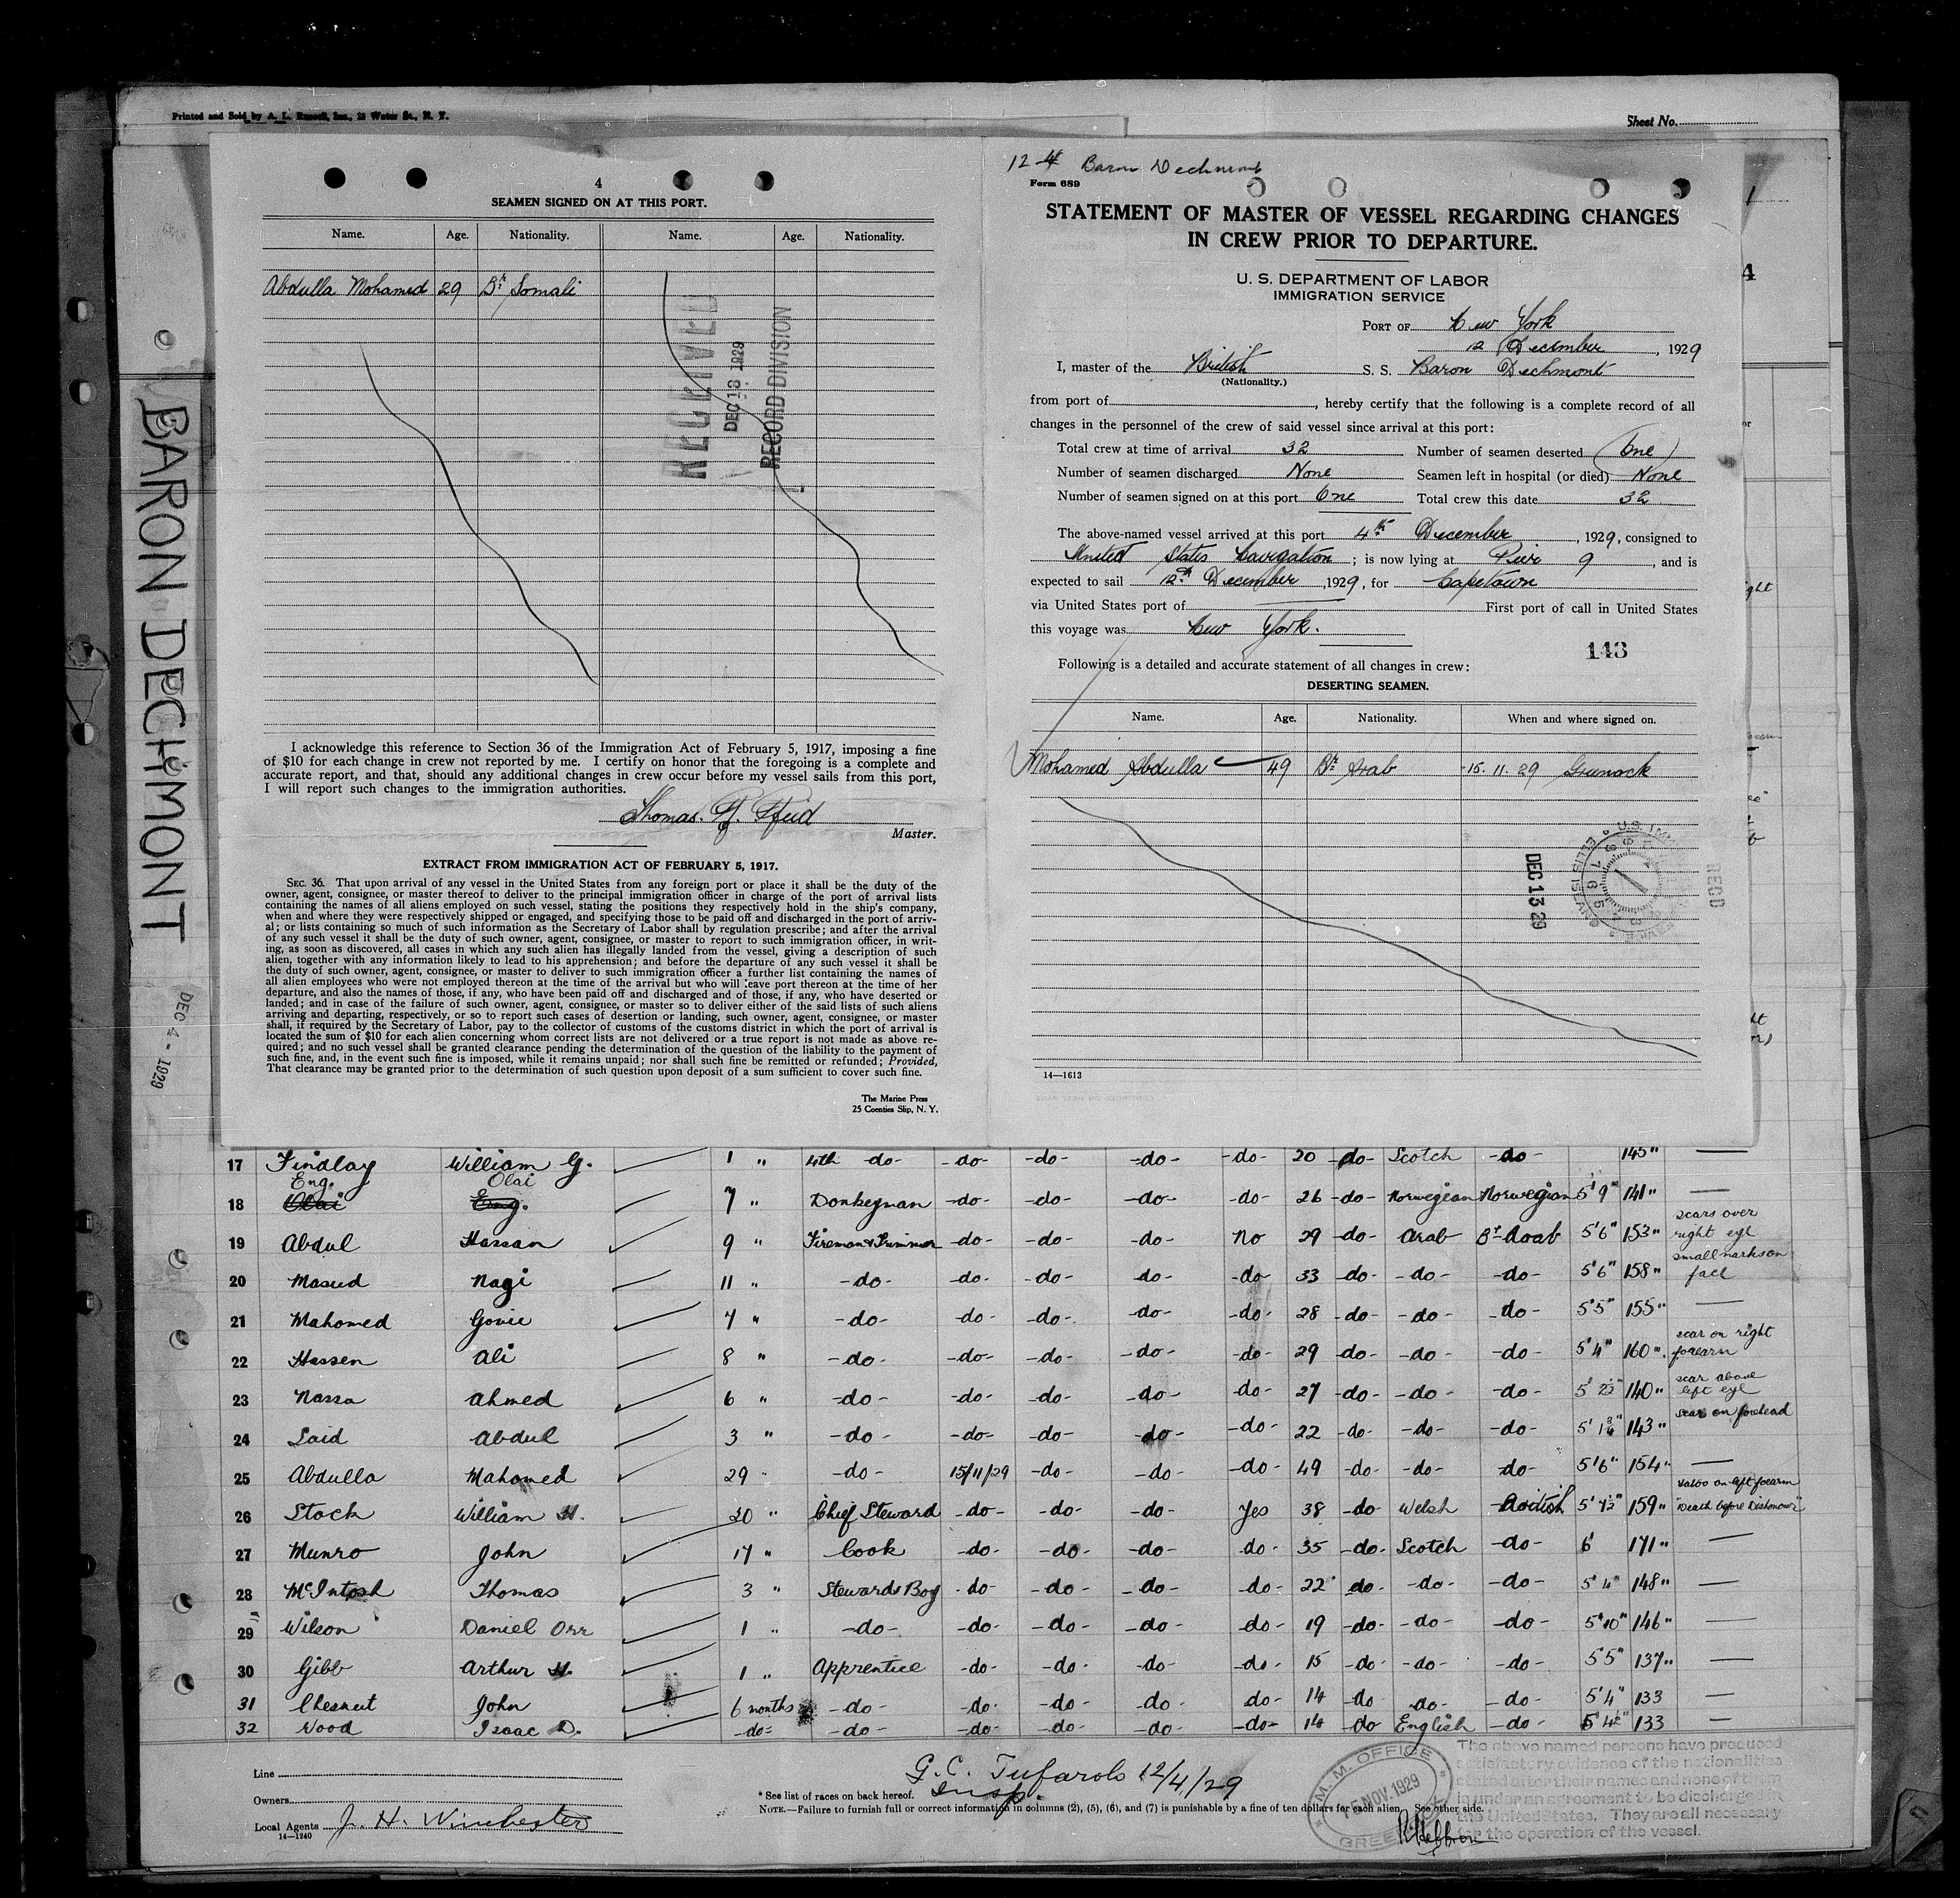 Printed and Sold by A. L. Russell, Inc., 13 Water St., N. Y.
Sheet No.
BARON DECHMONT
DEC 4 - 1929
4
SEAMEN SIGNED ON AT THIS PORT.
Name. Age. Nationality. Name. Age. Nationality.
Abdulla Mohamed 29 Br Somali
RECEIVED
DEC 18 1929
RECORD DIVISION
I acknowledge this reference to Section 36 of the Immigration Act of February 5, 1917, imposing a fine
of $10 for each change in crew not reported by me. I certify on honor that the foregoing is a complete and
accurate report, and that, should any additional changes in crew occur before my vessel sails from this port,
I will report such changes to the immigration authorities.
Thomas. Reid
Master.
EXTRACT FROM IMMIGRATION ACT OF FEBRUARY 5, 1917.
SEC. 36. That upon arrival of any vessel in the United States from any foreign port or place it shall be the duty of the
owner, agent, consignee, or master thereof to deliver to the principal immigration officer in charge of the port of arrival lists
containing the names of all aliens employed on such vessel, stating the positions they respectively hold in the ship's company,
when and where they were respectively shipped or engaged, and specifying those to be paid off and discharged in the port of arriv-
al; or lists containing so much of such information as the Secretary of Labor shall by regulation prescribe; and after the arrival
of any such vessel it shall be the duty of such owner, agent, consignee, or master to report to such immigration officer, in writ-
ing, as soon as discovered, all cases in which any such alien has illegally landed from the vessel, giving a description of such
alien, together with any information likely to lead to his apprehension; and before the departure of any such vessel it shall be
the duty of such owner, agent, consignee, or master to deliver to such immigration officer a further list containing the names of
all alien employees who were not employed thereon at the time of the arrival but who will leave port thereon at the time of her
departure, and also the names of those, if any, who have been paid off and discharged and of those, if any, who have deserted or
landed; and in case of the failure of such owner, agent, consignee, or master so to deliver either of the said lists of such aliens
arriving and departing, respectively, or so to report such cases of desertion or landing, such owner, agent, consignee, or master
shall, if required by the Secretary of Labor, pay to the collector of customs of the customs district in which the port of arrival is
located the sum of $10 for each alien concerning whom correct lists are not delivered or a true report is not made as above re-
quired; and no such vessel shall be granted clearance pending the determination of the question of the liability to the payment of
such fine, and, in the event such fine is imposed, while it remains unpaid; nor shall such fine be remitted or refunded; Provided,
That clearance may be granted prior to the determination of such question upon deposit of a sum sufficient to cover such fine.
The Marine Press
25 Coenties Slip, N. Y.
12-4 Baron Dechmont
Form 689
STATEMENT OF MASTER OF VESSEL REGARDING CHANGES
IN CREW PRIOR TO DEPARTURE.
U. S. DEPARTMENT OF LABOR
IMMIGRATION SERVICE
PORT OF New York
12 December, 1929
I, master of the British S. S. Baron Dechmont
(Nationality.)
from port of , hereby certify that the following is a complete record of all
changes in the personnel of the crew of said vessel since arrival at this port:
Total crew at time of arrival 32 Number of seamen deserted One
Number of seamen discharged None Seamen left in hospital (or died) None
Number of seamen signed on at this port One Total crew this date 32
The above-named vessel arrived at this port 4th December, 1929, consigned to
United States Navigation; is now lying at Pier 9, and is
expected to sail 12th December, 1929, for Capetown
via United States port of First port of call in United States
this voyage was New York.
143
Following is a detailed and accurate statement of all changes in crew:
DESERTING SEAMEN.
Name. Age. Nationality. When and where signed on.
Mohamed Abdulla 49 Br Arab 15. 11. 29 Greenock
DEC 13 29
REC'D
14—1613
17 Findlay William G. 1 " 4th -do- -do- -do- -do- -do- 20 -do- Scotch -do- 145"
Eng. Olai
18 Olai Eng. 7 " Donkeyman -do- -do- -do- -do- 26 -do- Norwegian Norwegian 5'9" 141"
19 Abdul Hassan 9 " Fireman & Trimmer -do- -do- -do- No 29 -do- Arab Br Arab 5'6" 153" scars over right eye
20 Masud Nagi 11 " -do- -do- -do- -do- -do- 33 -do- -do- -do- 5'6" 158" small marks on face
21 Mahomed Govie 4 " -do- -do- -do- -do- -do- 28 -do- -do- -do- 5'5" 155"
22 Hassen Ali 8 " -do- -do- -do- -do- -do- 29 -do- -do- -do- 5'4" 160". scar on right forearm
23 Nassa Ahmed 6 " -do- -do- -do- -do- -do- 27 -do- -do- -do- 5' 2½" 140" scar above left eye
24 Said Abdul 3 " -do- -do- -do- -do- -do- 22 -do- -do- -do- 5' 1¾" 143" scar on forehead
25 Abdulla Mahomed 29 " -do- 15/11/29 -do- -do- -do- 49 -do- -do- -do- 5'6" 154"
26 Stock William H. 20 " Chief Steward -do- -do- -do- Yes 38 -do- Welsh British 5' 7½" 159" tatoo on left forearm "Death before Dishonour"
27 Munro John 17 " Cook -do- -do- -do- -do- 35 -do- Scotch -do- 6' 171"
28 McIntosh Thomas 3 " Stewards Boy -do- -do- -do- -do- 22 do- -do- -do- 5'4" 148"
29 Wilson Daniel Orr 1 " -do- -do- -do- -do- -do- 19 -do- -do- -do- 5'10" 146"
30 Gibb Arthur H. 1 " Apprentice -do- -do- -do- -do- 15 -do- -do- -do- 5'5" 137"
31 Chesnut John 6 months -do- -do- -do- -do- do- 14 -do -do- -do- 5'4" 133
32 Wood Isaac D. -do- -do- -do- -do- -do- -do- 14 -do English -do- 5'4½" 133
Line
Owners
Local Agents J. H. Winchester
14—1240
G. C. Tufarolo 12/4/29
Insp.
* See list of races on back hereof.
NOTE.—Failure to furnish full or correct information in columns (2), (5), (6), and (7) is punishable by a fine of ten dollars for each alien. See other side.
M. M. OFFICE
15 NOV. 1929
GREENOCK
The above named persons have produced
satisfactory evidence of the nationalities
stated after their names and none of them
is under an agreement to be discharged in
the United States. They are all necessary
for the operation of the vessel.